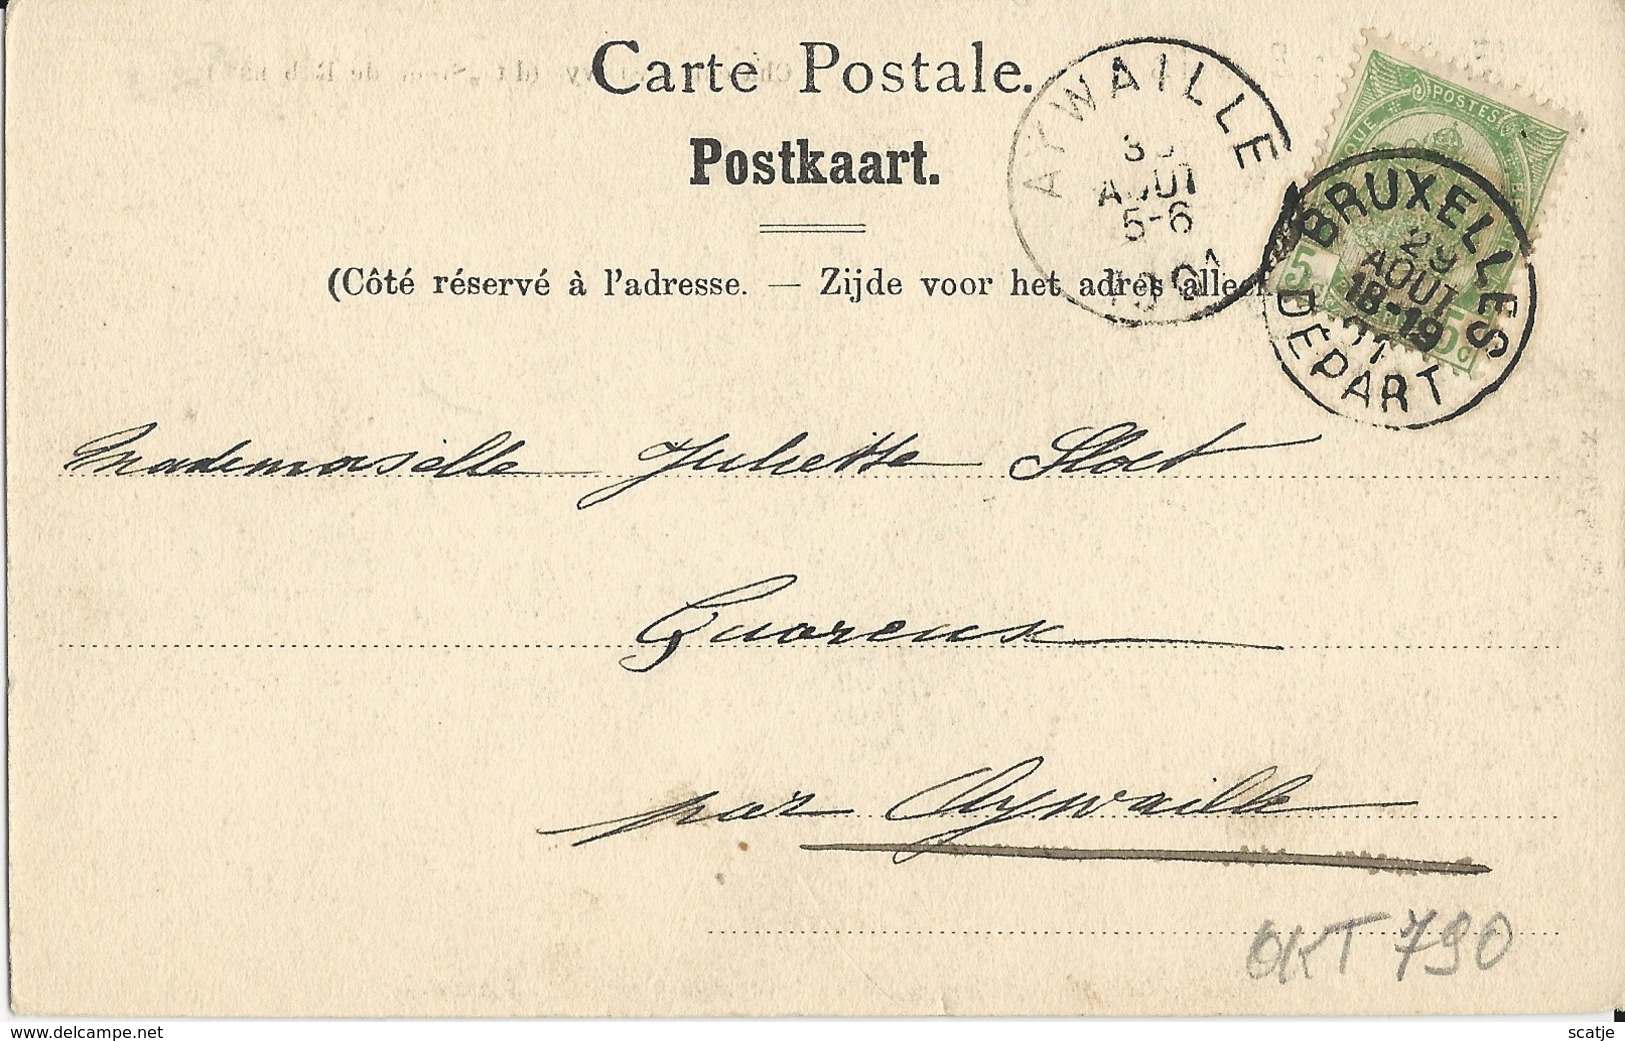 Carte Postale.
Postkaart.
(Côté réservé à l'adresse. — Zijde voor het adres alleen
AYWAILLE
30
AOUT
5-6
1901
POSTES
5
5c
BRUXELLES
29
AOUT
18-19
01
DEPART
Mademoiselle Juliette Sloet
Quoreux
par Aywaille
OKT 790
delcampe.net
scatje